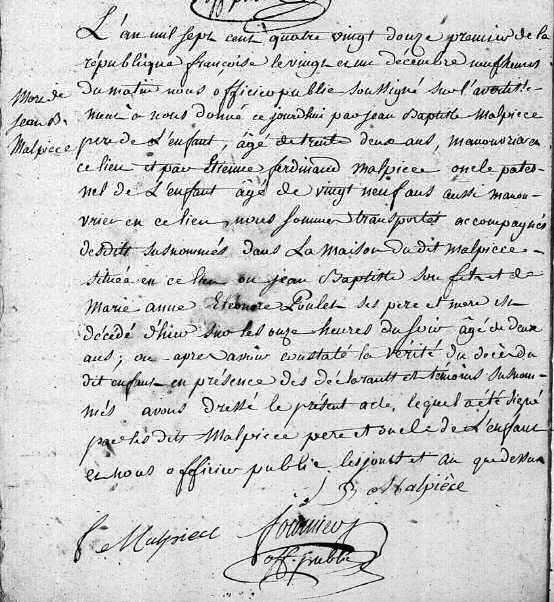 L'an mil sept cent quatre vingt douze premier de la
république françoise le vingt et un décembre neuf heures
du matin nous officier public soussigné sur l'avertisse-
ment a nous donné ce jourdhui par jean Baptiste Malpiece
pere de L'enfant, âgé de trente deux ans, manouvrier en
ce lieu et par Etienne ferdinand Malpiece oncle pater-
nel de L'enfant âgé de vingt neuf ans aussi manou-
vrier en ce lieu, nous sommes transportet accompagnés
desdits susnommés dans La maison du dit Malpiece
située en ce lieu ou jean Baptiste son fils et de
Marie anne Eleonore Poulet ses pere et mere est
décédé d'hier sur les onze heures du soir âgé de deux
ans; ou apres avoir constaté la vérité du décès du
dit enfant en présence des déclarants et témoins susnom-
més avons dressé le présent acte, lequel a été signé
par les dits Malpiece pere et oncle de L'enfant
et nous officier public les jours et an que dessus
Mort de
Jean B.
Malpiece
J B Malpiéce
f Malpiece
off. public